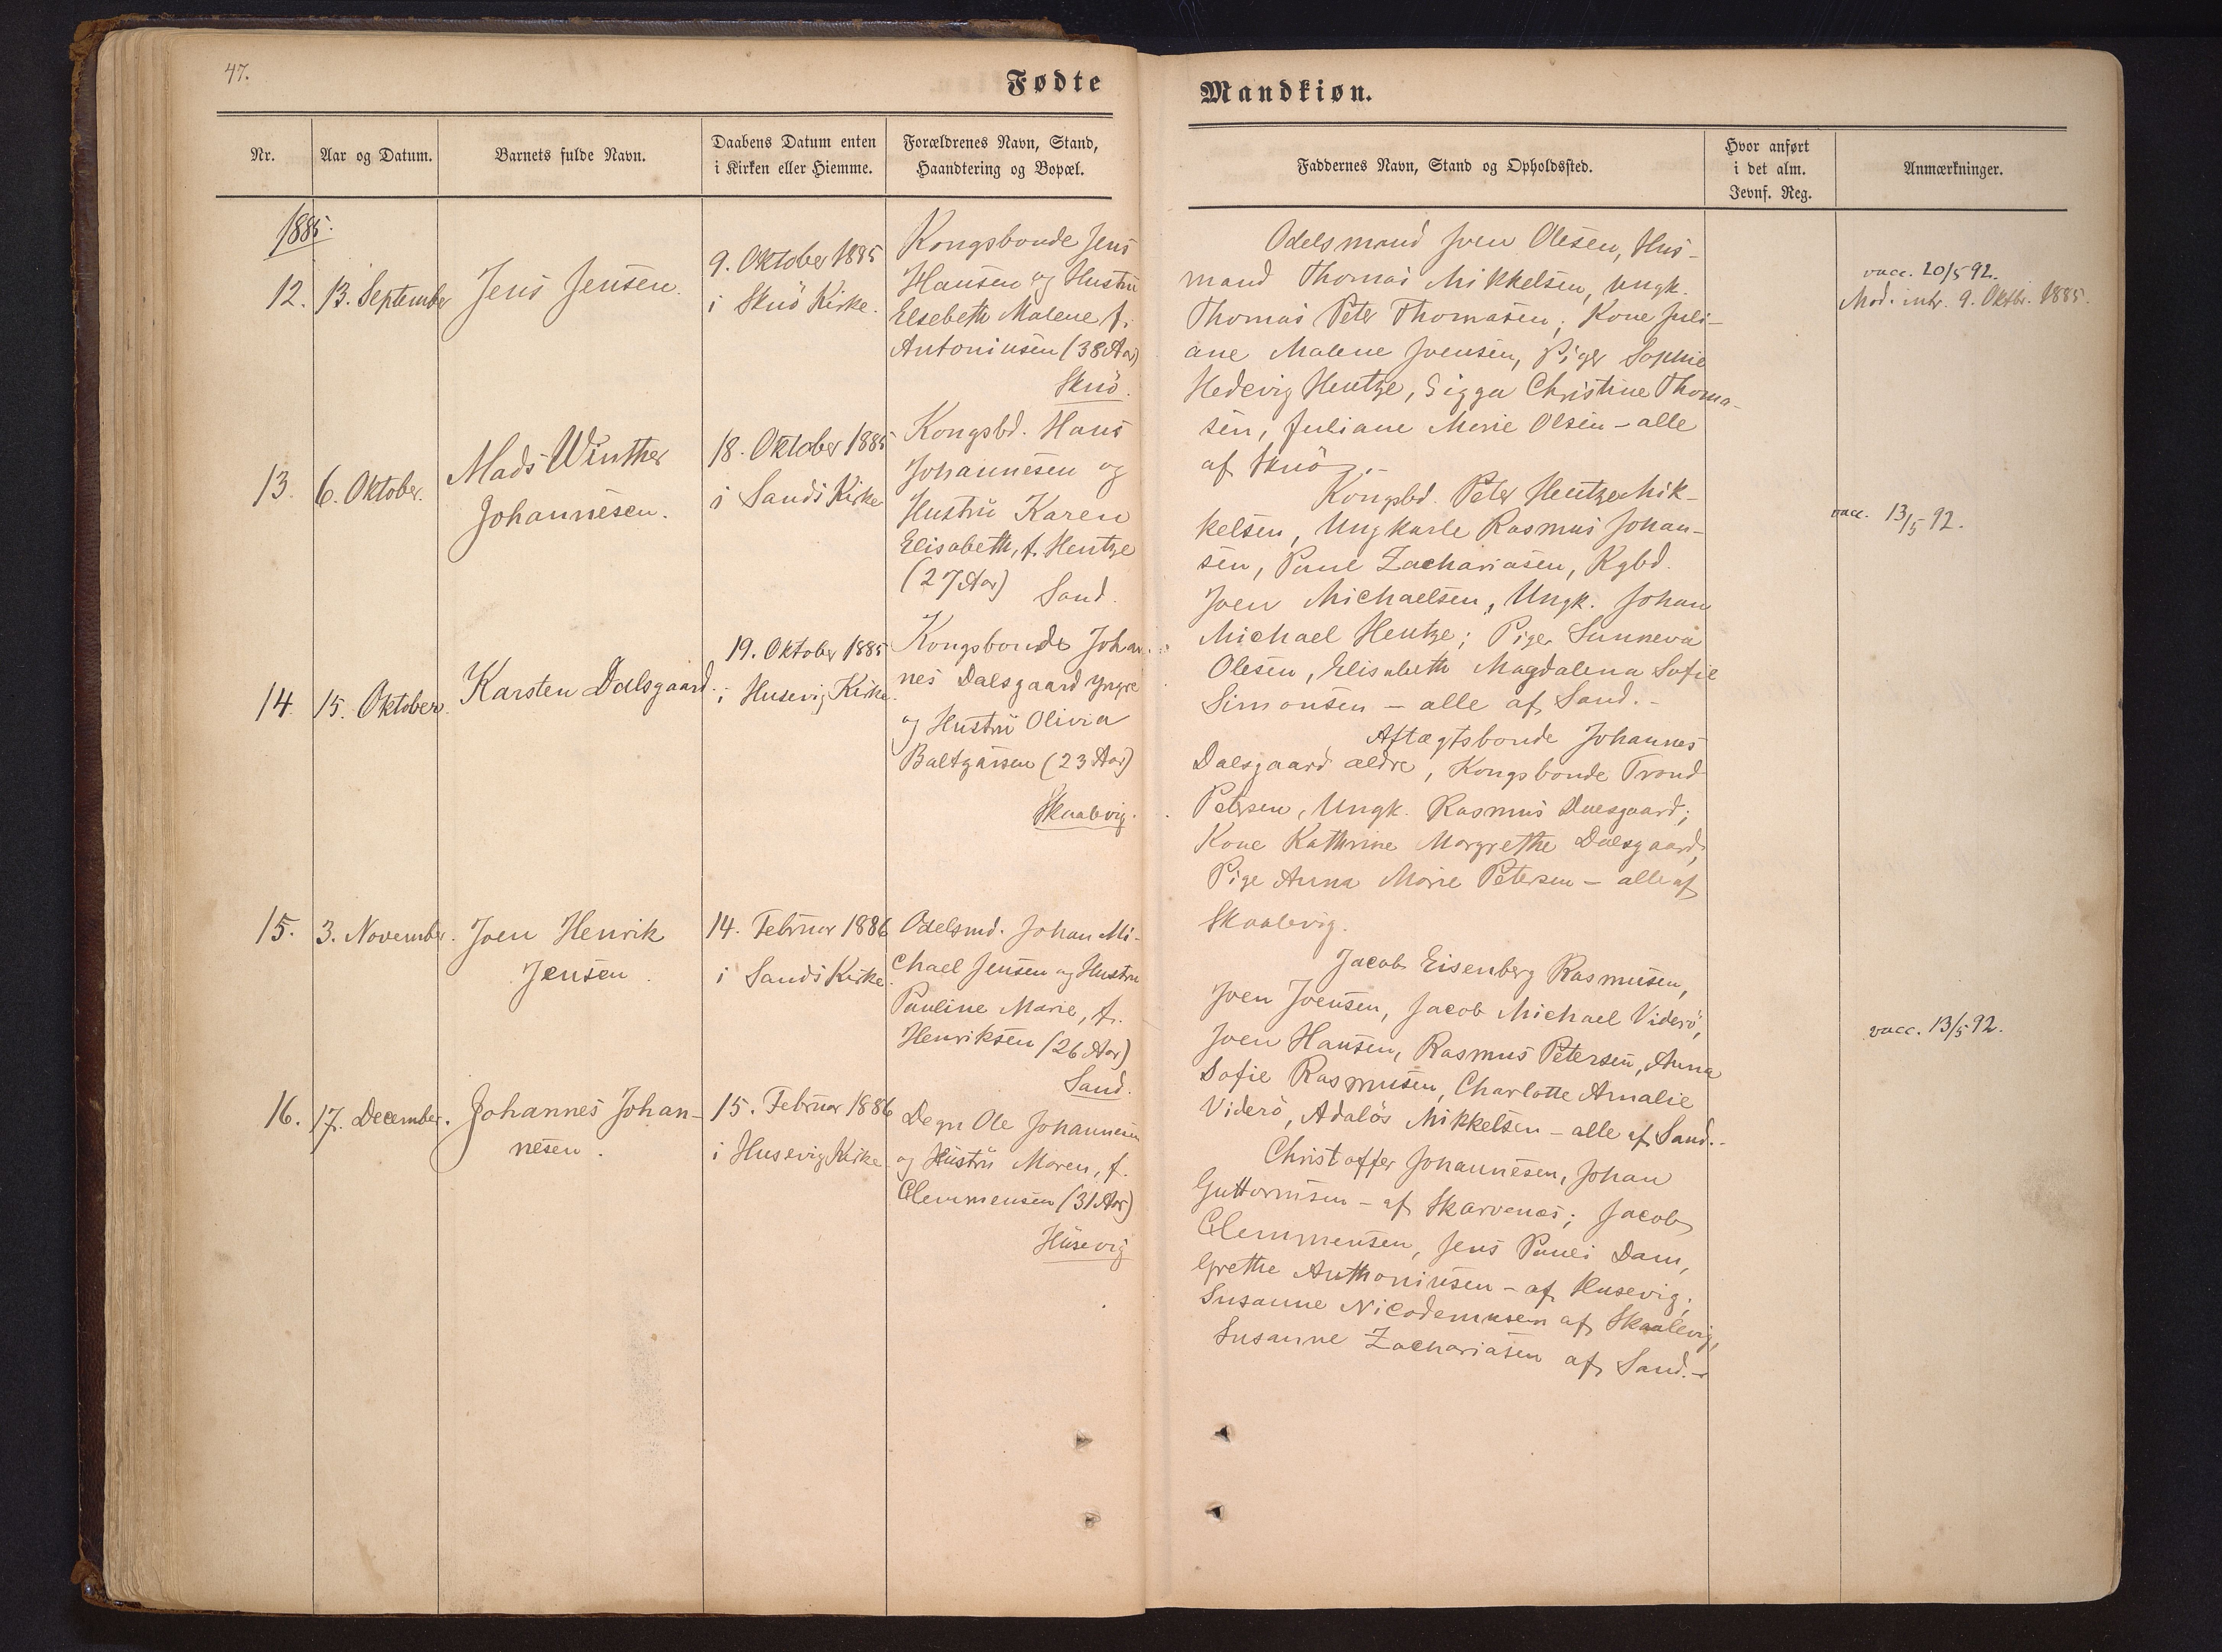 47.
Fødte
Nr.
Aar og Datum.
Barnets fulde Navn.
Daabens Datum enten
i Kirken eller Hiemme.
Forældrenes Navn, Stand,
Haandtering og Bopæl.
1885.
12.
13. September
Jens Jensen.
9. Oktober 1885
i Skuö Kirke.
Kongsbonde Jens
Hansen og Hustru
Elsebeth Malene f.
Antoniusen (38 Aar)
Skuö.
13.
6. Oktober.
Mads Winther
Johannesen.
18. Oktober 1885
i Sands Kirke
Kongsbd. Hans
Johannesen og
Hustru Karen
Elisabeth, f. Hentze
(27 Aar) Sand.
14.
15. Oktober.
Karsten Dalsgaard.
19. Oktober 1885
i Husevig Kirke.
Kongsbonde Johan-
nes Dalsgaard yngre
og Hustru Olivia
Baltzarsen (23 Aar)
Skaalevig.
15.
3. November.
Joen Henrik
Jensen.
14. Februar 1886
i Sands Kirke.
Odelsmd. Johan Mi-
chael Jensen og Hustru
Pauline Marie, f.
Henriksen (26 Aar)
Sand.
16.
17. December.
Johannes Johan-
nesen.
15. Februar 1886
i Husevig Kirke.
Degn Ole Johannesen
og Hustru Maren, f.
Clemmensen (31 Aar)
Husevig
Mandkiøn.
Faddernes Navn, Stand og Opholdssted.
Hvor anført
i det alm.
Jevnf. Reg.
Anmærkninger.
Odelsmand Joen Olesen, Hus-
mand Thomas Mikkelsen, Ungk.
Thomas Peter Thomasen; Kone Juli-
ane Malene Joensen, Piger Sophie
Hedevig Hentze, Sigga Christine Thoma-
sen, Juliane Marie Olsen - alle
af Skuö.-
vacc. 20/5 92.
Mod. intr. 9. Oktbr. 1885.
Kongsbd. Peter Hentze Mik-
kelsen, Ungkarle Rasmus Johan-
sen, Poul Zachariasen, Kgbd.
Joen Michaelsen, Ungk. Johan
Michael Hentze; Piger Sunneva
Olesen, Elisabeth Magdalena Sofie
Simonsen - alle af Sand.-
vacc. 13/5 92.
Aftægtsbonde Johannes
Dalsgaard ældre, Kongsbonde Trond
Petersen, Ungk. Rasmus Dalsgaard;
Kone Kathrine Margrethe Dalsgaard,
Pige Anna Marie Petersen - alle af
Skaalevig.
Jacob Eisenberg Rasmusen,
Joen Joensen, Jacob Michael Viderö,
Joen Hansen, Rasmus Petersen, Anna
Sofie Rasmusen, Charlotte Amalie
Viderö, Adalös Mikkelsen - alle af Sand.-
vacc. 13/5 92.
Christoffer Johannesen, Johan
Guttormsen - af Skarvenæs; Jacob
Clemmensen, Jens Pauli Dam,
Grethe Anthoniusen - af Husevig;
Susanne Nicodemusen af Skaalevig,
Susanne Zachariasen af Sand.-